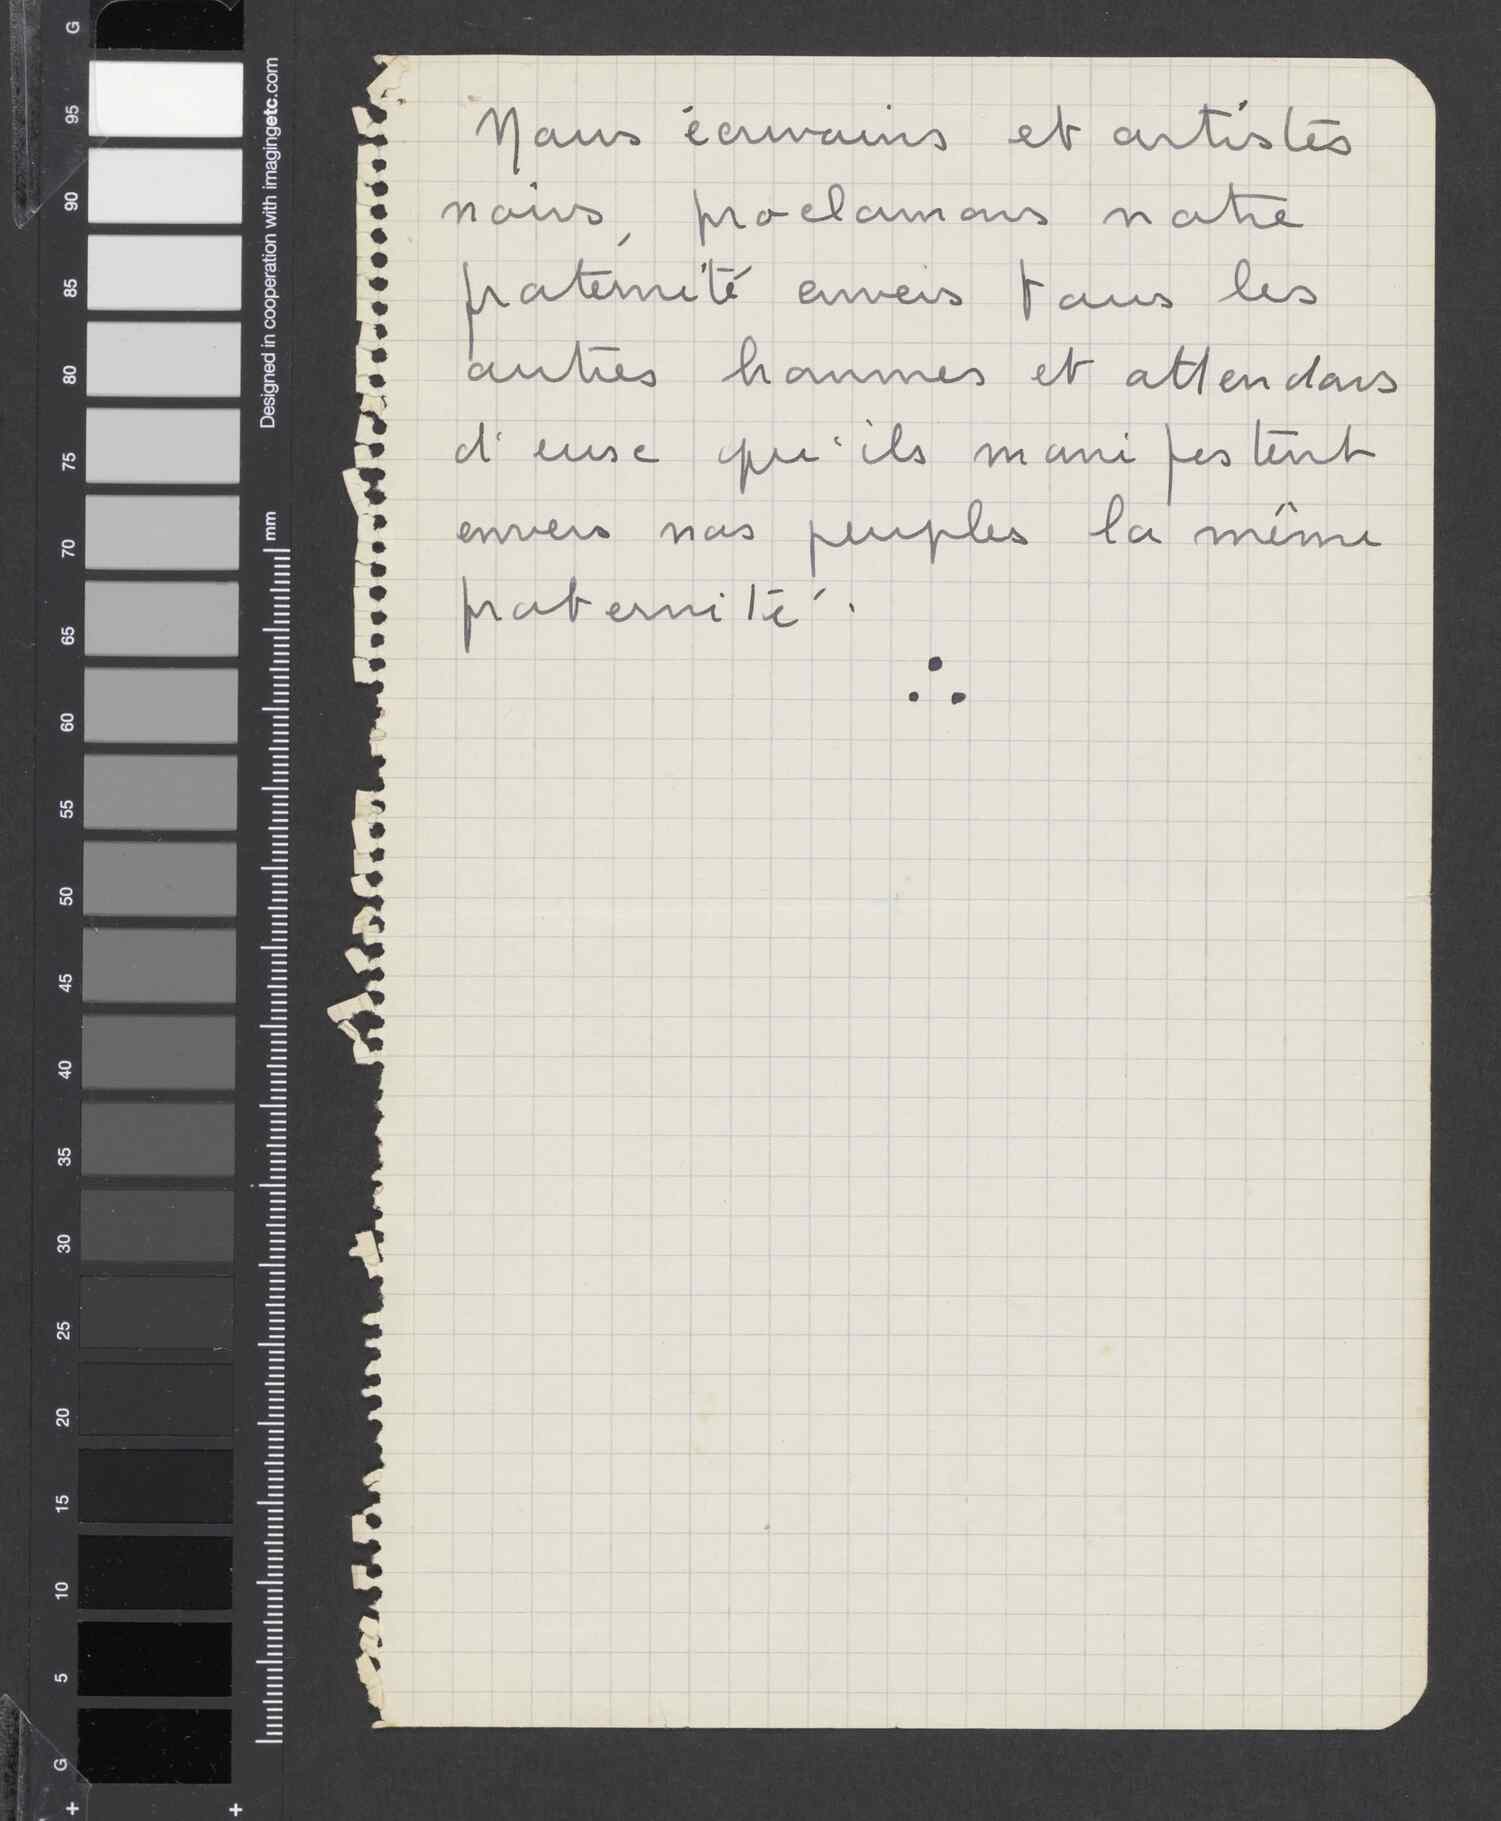 Nous écrivains et artistes
noirs, proclamons notre
fraternité envers tous les
autres hommes et attendons
d'eux qu'ils manifestent
envers nos peuples la même
fraternité.
Designed in cooperation with imagingetc.com
mm
G
95
90
85
80
75
70
65
60
55
50
45
40
35
30
25
20
15
10
5
G